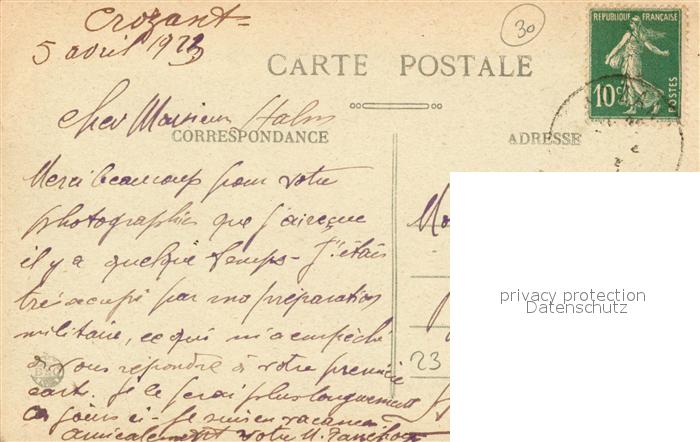 Crozant =
5 avril 1923
30
RÉPUBLIQUE FRANÇAISE
10c
POSTES
CARTE POSTALE
Cher Monsieur
CORRESPONDANCE
ADRESSE
Merci beaucoup pour votre
photographie que j'ai reçue
il y a quelque temps - J'étais
très occupé par ma préparation
militaire, ce qui m'a empêché
de vous répondre à votre première
carte. Je le ferai plus longuement
ces jours ci - Je suis en vacances
amicalement votre M.
23
privacy protection
Datenschutz